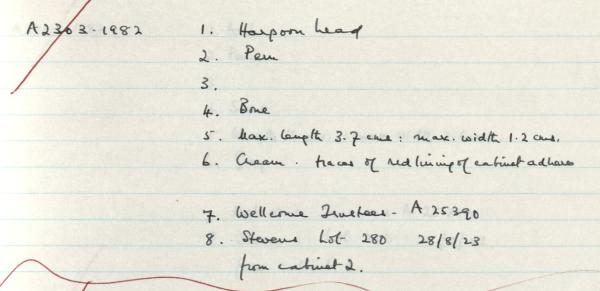 A2303.1982 1. Harpoon head
2. Peru
3.
4. Bone
5. Max. length 3.7 cms : max. width 1.2 cms.
6. Cream. traces of red lining of cabinet adheres
7. Wellcome Trustees - A 25390
8. Stevens Lot 280 28/8/23
from cabinet 2.